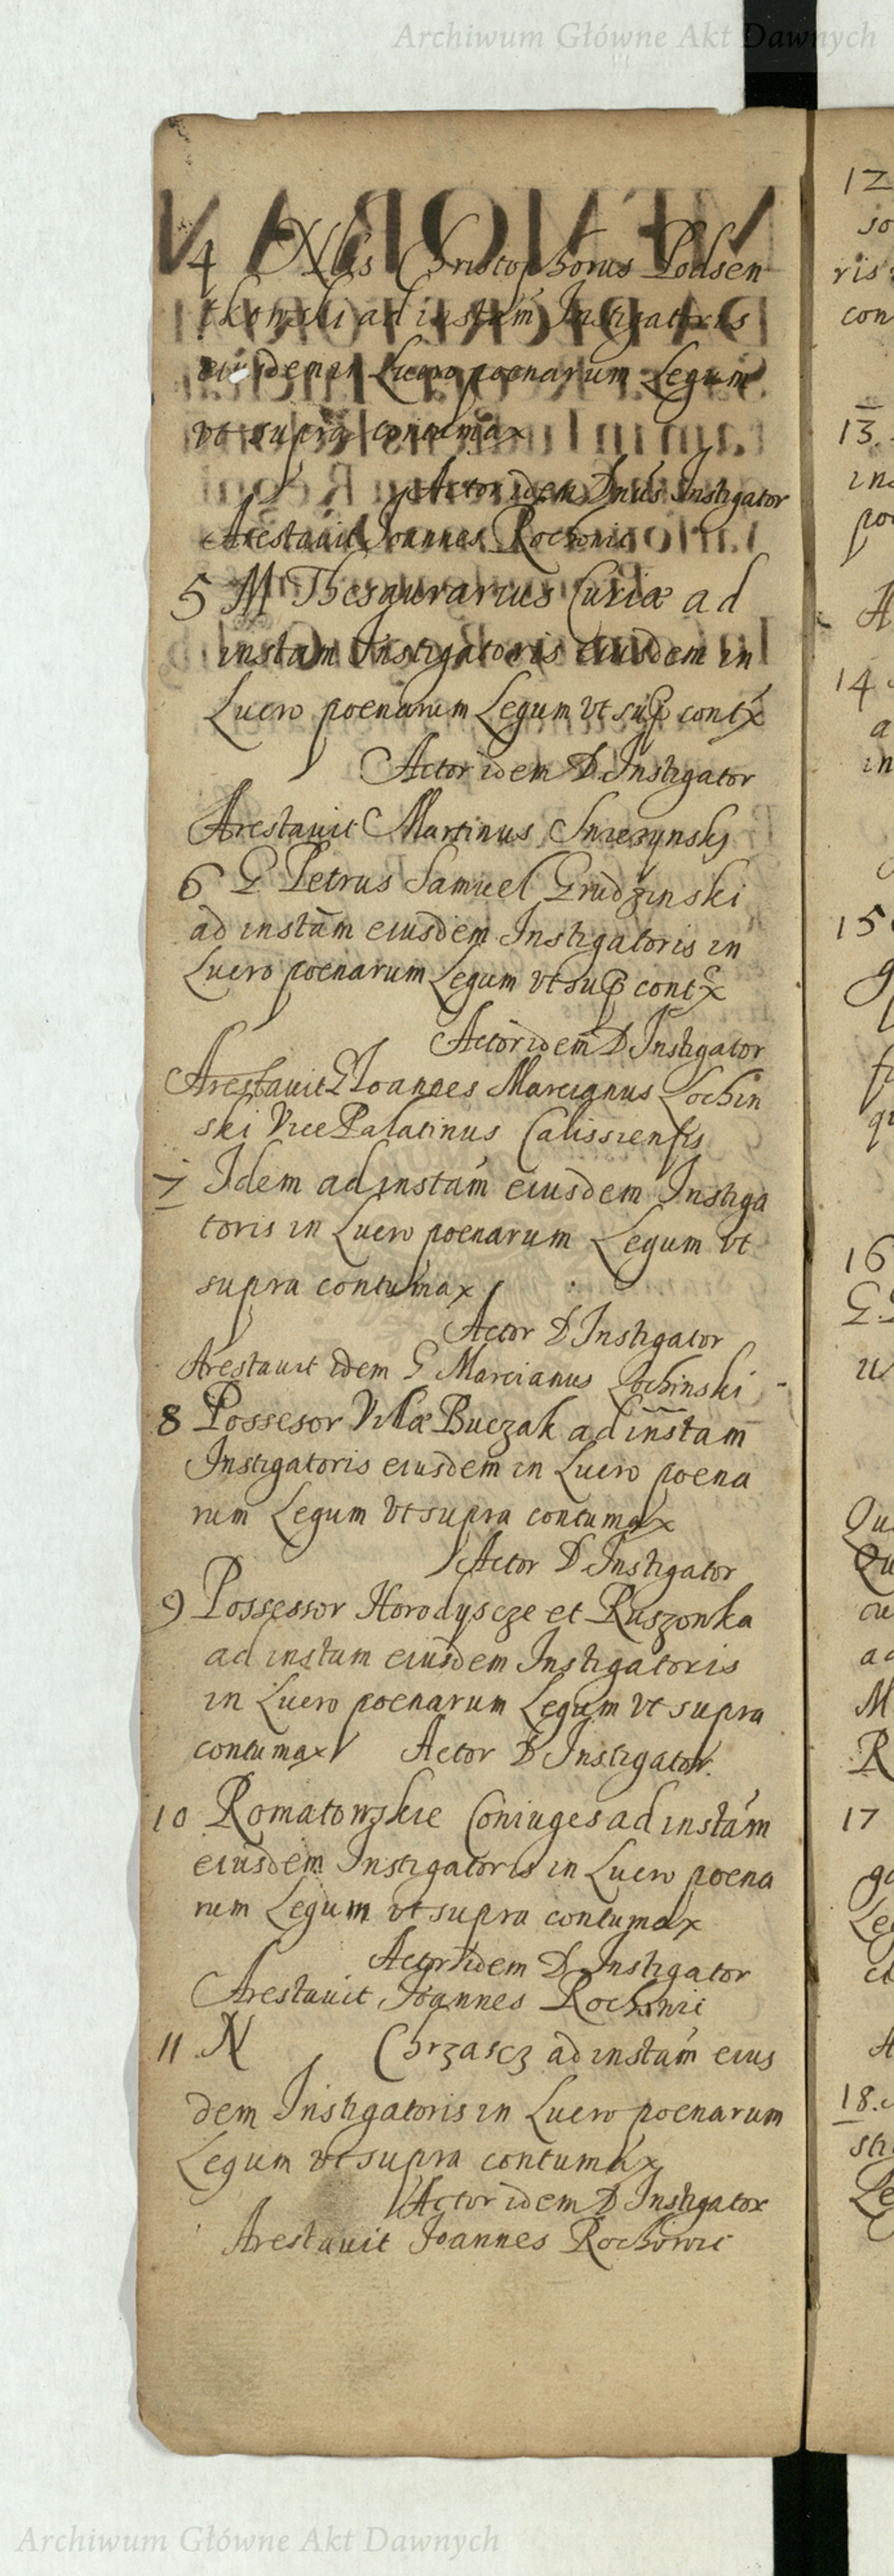 Archiwum Główne Akt Dawnych
4 Nlis Christophorus Podsen
tkowski ad instam Instigatoris
eiusdem in Lucro poenarum Legum
vt supra contumax
Actor idem Dnus Instigator
Arestauit Joannes Rochowic
5 M Thesaurarius Curiæ ad
instam Instigatoris eiusdem in
Lucro poenarum Legum vt sup contx
Actor idem D. Instigator
Arestauit Martinus
6 G Petrus Samuel Grudzinski
ad instam eiusdem Instigatoris in
Lucro poenarum Legum vt sup contx
Actor idem D Instigator
Arestauit G Ioannes Marcianus Lochin
ski Vice Palatinus Calissiensis
7 Idem ad instam eiusdem Instiga
toris in Lucro poenarum Legum vt
supra contumax
Actor D Instigator
Arestauit idem G Marcianus Lochinski
8 Possesor Villæ Buczak ad instam
Instigatoris eiusdem in Lucro poena
rum Legum vt supra contumax
Actor D Instigator
9 Possessor Horodyscze et Ruszonka
ad instam eiusdem Instigatoris
in Lucro poenarum Legum vt supra
contumax Actor D Instigator.
10 Romatowskie Coniuges ad instam
eiusdem Instigatoris in Lucro poena
rum Legum vt supra contumax
Actor idem D Instigator
Arestauit Joannes Rochowic
11 N Chrzascz ad instam eius
dem Instigatoris in Lucro poenarum
Legum vt supra contumax
Actor idem D Instigator
Arestauit Joannes Rochowic
12
so
ris
con
13.
ins
poe
A
14
a
in
15
16
G.
17
Leg
18.
sti
Le
Archiwum Główne Akt Dawnych